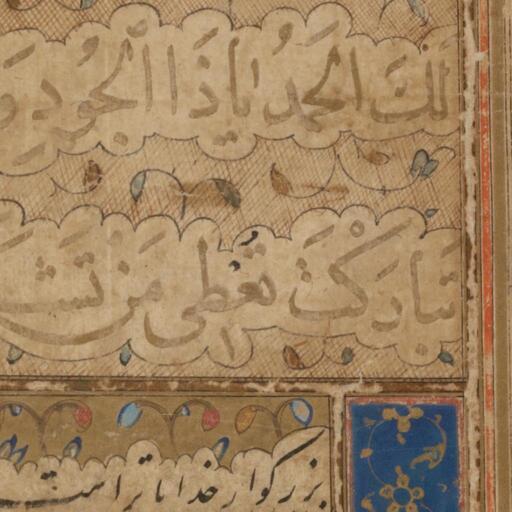 لَكَ الحَمْدُ يا ذَا الجُودِ وَ
تَبَارَكْتَ تُعْطِى مَنْ تَشَ
بزرگوار خدایا تراست